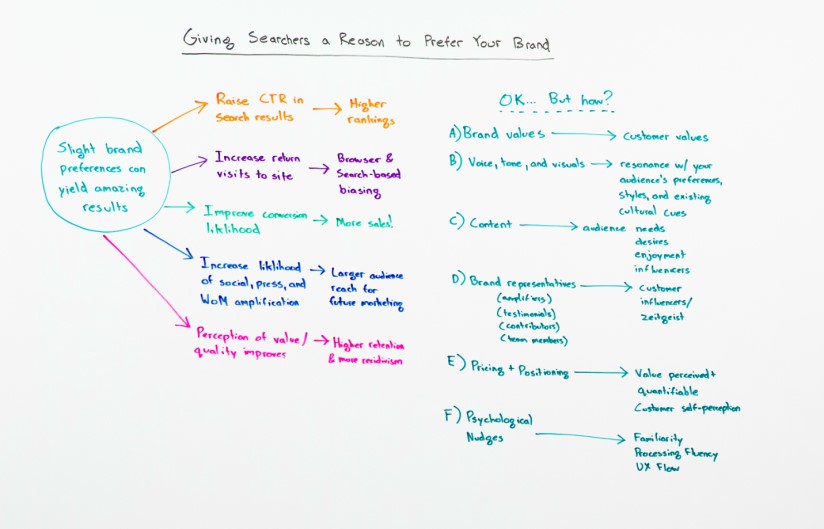 Giving Searchers a Reason to Prefer Your Brand
Slight brand
preferences can
yield amazing
results
Raise CTR in
search results
Higher
rankings
Increase return
visits to site
Browser &
Search-based
biasing
Improve conversion
liklihood
More sales!
Increase liklihood
of social, press, and
WoM amplification
Larger audience
reach for
future marketing
Perception of value/
quality improves
Higher retention
& more recidivism
OK... But how?
A) Brand values
Customer values
B) Voice, tone, and visuals
resonance w/ your
audience's preferences,
styles, and existing
cultural cues
C) Content
audience needs
desires
enjoyment
influencers
D) Brand representatives
(amplifiers)
(testimonials)
(contributors)
(team members)
Customer
influencers/
zeitgeist
E) Pricing + Positioning
Value perceived +
quantifiable
Customer self-perception
F) Psychological
Nudges
Familiarity
Processing Fluency
UX Flow